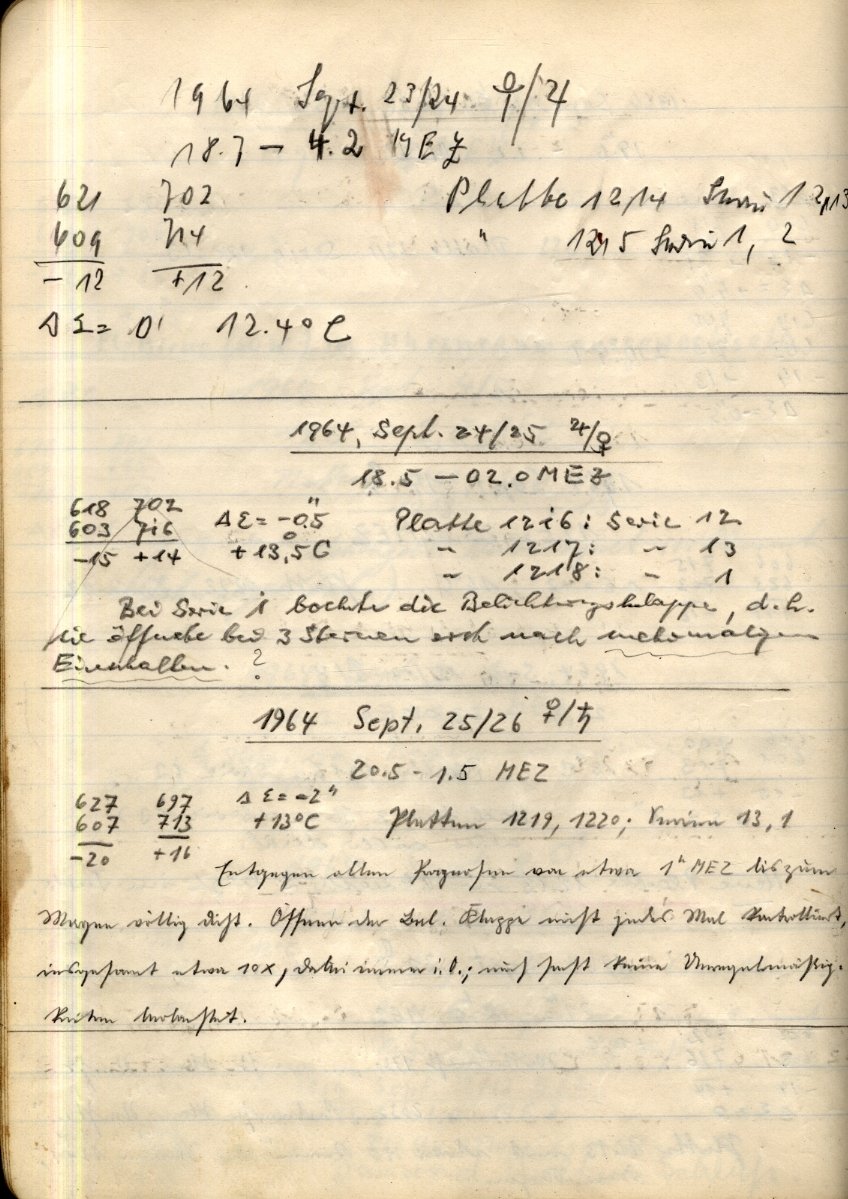 1964 Sept. 23/24 ☿/♃
18.7 – 4.2 MEZ
621 702 Platte 1214 Serie 12,13
609 714 " 1215 Serie 1, 2
- 12 +12
Δ Σ = 0' 12.4° C
1964, Sept. 24/25 ♃/♀
18.5 – 02.0 MEZ
618 702
603 716 Δ Σ = -0.5" Platte 1216: Serie 12
-15 +14 +13,5° C " 1217: " 13
" 1218: " 1
Bei Serie 1 bockte die Belichtungsklappe, d.h.
sie öffnete bei 3 Sternen erst nach mehrmaligem
Einschalten. ?
1964 Sept. 25/26 ♀/♄
20.5 - 1.5 MEZ
627 697 Δ Σ = -2"
607 713 +13°C Platten 1219, 1220; Serien 13, 1
-20 +16
Entgegen allen Prognosen von etwa 1h MEZ bis zum
Morgen völlig dicht. Öffnen der Bel. Klappe nicht jedes Mal kontrolliert,
insgesamt etwa 10x, dabei immer i.O.; auch sonst keine Unregelmäßig-
keiten beobachtet.